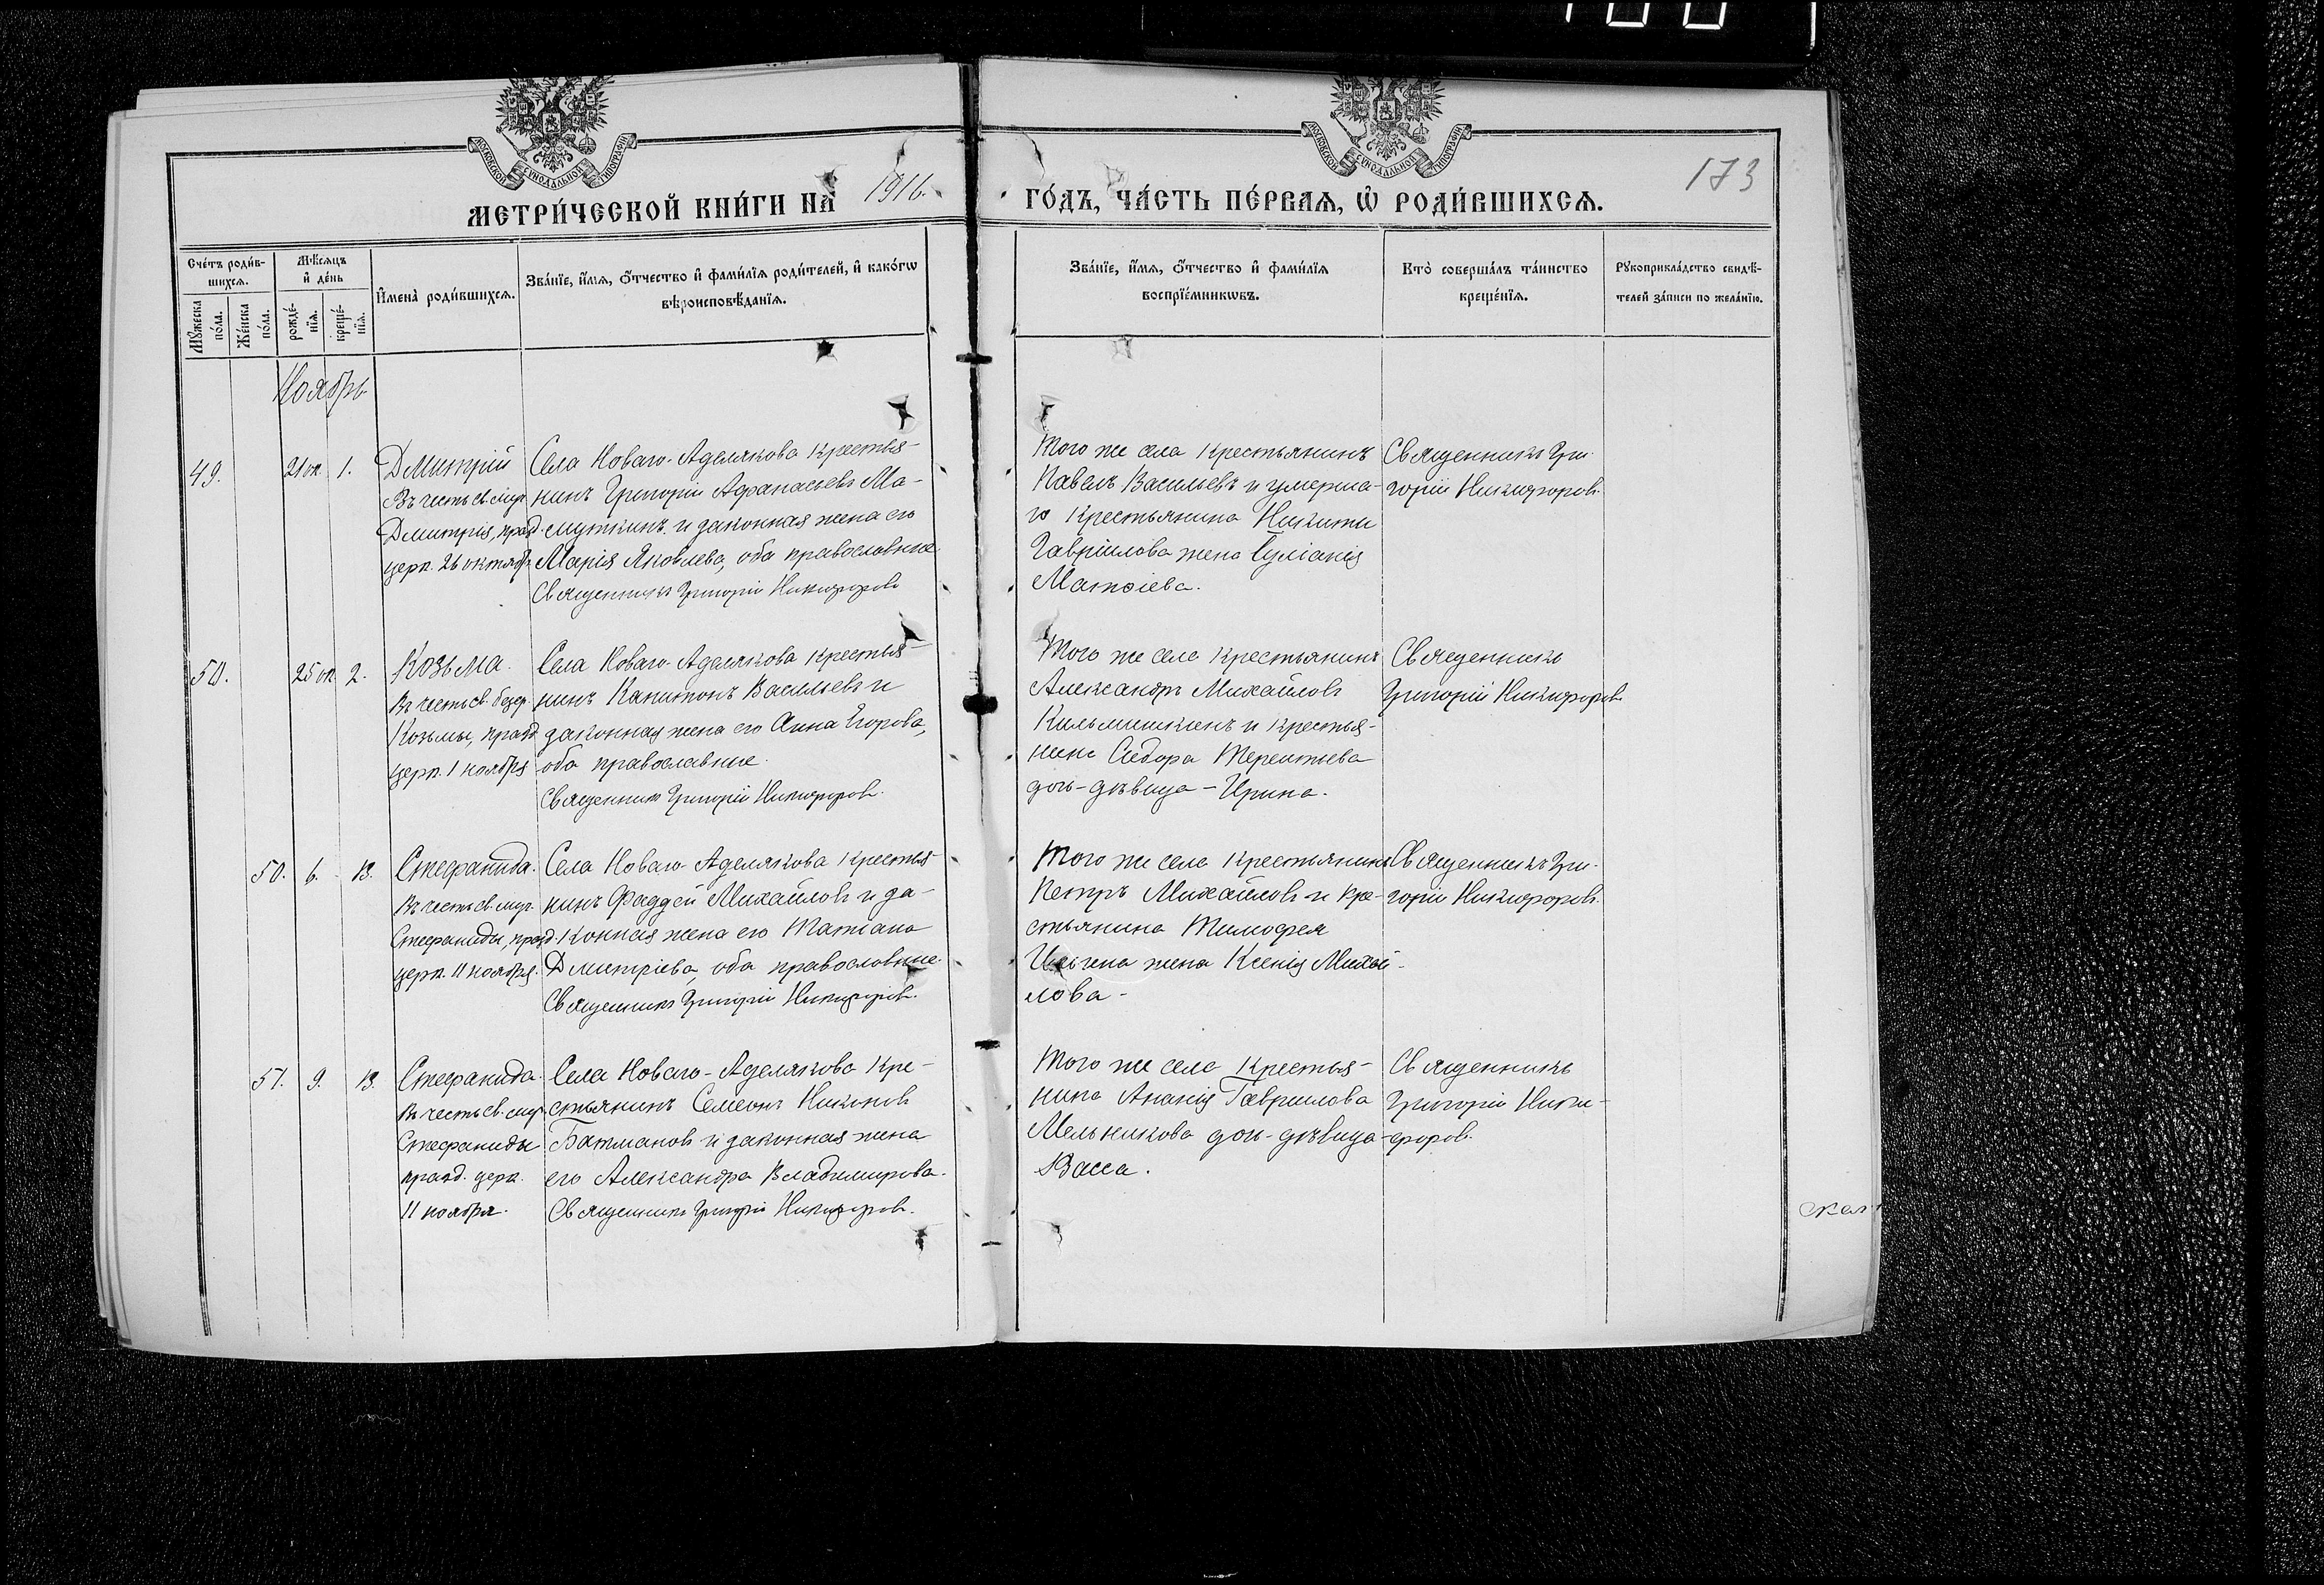 МОСКОВСКОЙ СѴНОДАЛЬНОЙ ТИПОГРАФІИ
МОСКОВСКОЙ СѴНОДАЛЬНОЙ ТИПОГРАФІИ
173
МЕТРИ́ЧЕСКОЙ КНИ́ГИ НА̀ 1916. ГО́ДЪ, ЧА́СТЬ ПЕ́РВАѦ, Ѡ҆ РОДИ́ВШИХСѦ.
Сче́тъ роди́в-
шихсѧ.
Мꙋ́жеска по́ла.
Же́нска по́ла.
Мѣ́сѧцъ
и҆ де́нь
рожде́-
нїѧ.
креще́-
нїѧ.
И҆мена̀ роди́вшихсѧ.
Зва́нїе, и҆́мѧ, ѻ҆́тчество и҆ фами́лїѧ роди́телей, и҆ како́гѡ
вѣроисповѣ́данїѧ.
Зва́нїе, и҆́мѧ, ѻ҆́тчество и҆ фами́лїѧ
воспрїе́мникѡвъ.
Кто̀ соверша́лъ та́инство
креще́нїѧ.
Рꙋкоприкла́дство свидѣ́-
телей за́писи по жела́нїю.
Ноябрь
49.
21 ок.
1.
Дмитрій
Въ честь св. муч.
Дмитрія, празд.
церк. 26 октябр.
Села Новаго-Аделякова крестья-
нинъ Григорій Афанасьевъ Ма-
муткинъ и законная жена его
Марія Яковлева, оба православные
Священникъ Григорій Никифоровъ
Того же села крестьянинъ
Павелъ Васильевъ и умерша-
го крестьянина Никиты
Гавріилова жена Іуліанія
Матѳіева.
Священникъ Гри-
горій Никифоровъ.
50.
25 ок.
2.
Козьма.
Въ честь св. безср.
Козьмы, празд.
церк. 1 ноября
Села Новаго-Аделякова крестья-
нинъ Капитонъ Васильевъ и
законная жена его Анна Егорова,
оба православные.
Священникъ Григорій Никифоровъ.
Того же села крестьянинъ
Александръ Михайловъ
Кильмишкинъ и крестья-
нина Сидора Терентьева
дочь-дѣвица - Ирина.
Священникъ
Григорій Никифоровъ
50.
6.
13.
Стефанида.
Въ честь св. муч.
Стефаниды, празд.
церк. 11 ноября.
Села Новаго Аделякова крестья-
нинъ Фаддей Михайловъ и за-
конная жена его Татіана
Дмитріева, оба православные.
Священникъ Григорій Никифоровъ.
Того же села крестьянинъ
Петръ Михайловъ и кре-
стьянина Тимофея
Ильина жена Ксенія Михай-
лова -
Священникъ Гри-
горій Никифоровъ.
51.
9.
13.
Стефанида.
Въ честь св. муч.
Стефаниды
празд. церк.
11 ноября.
Села Новаго-Аделякова кре-
стьянинъ Семеонъ Никоновъ
Батмановъ и законная жена
его Александра Владимирова.
Священникъ Григорій Никифоровъ.
Того же села крестья-
нина Ананія Гавриилова
Мельникова дочь-дѣвица
Васса.
Священникъ
Григорій Ники-
форовъ.